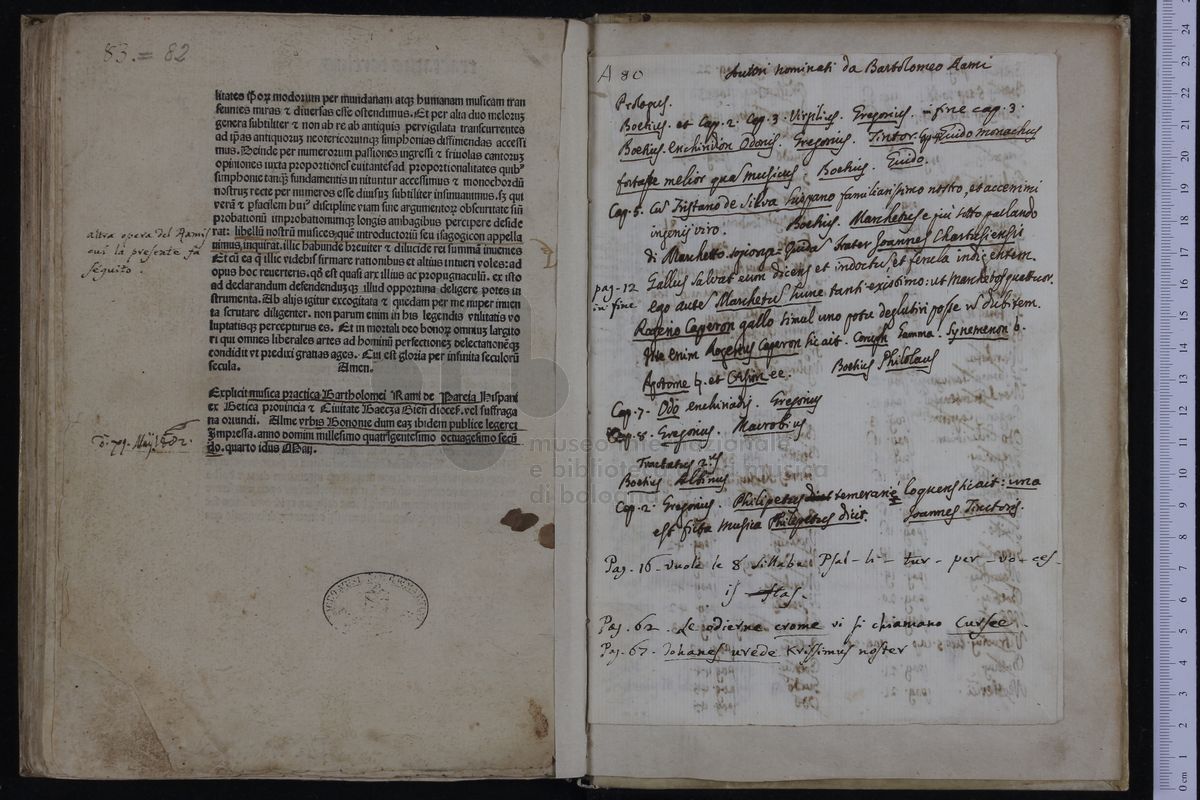 83. = 82
litates quoꝝ modorum per mundanam atqꝫ humanam musicam tran
seuntes miras ⁊ diuersas esse ostendimus. Et per alia duo melorum
genera subtiliter ⁊ non ab re ab antiquis peruigilata transcurrentes
ad ip̄as antiquorum neotericorumqꝫ simphonias distinendas accessi
mus. Deinde per numerorum passiones ingressi ⁊ friuolas cantorum
opiniones iuxta proportiones euitantes ad proportionalitates quibꝰ
simphonie tanqꝫ fundamentis inituntur accessimus ⁊ monochordū
nostrum recte per numeros esse diuisum subtiliter insinuauimus. sꝫ qui
verā ⁊ pfacilem huiꝰ discipline viam sine argumentorum obscuritate siū
probationū improbationumqꝫ longis ambagibus percipere deside
rat: libellū nostrū musices quem introductoriū seu isagogicon appella
uimus, inquirat. illic habunde breuiter ⁊ dilucide rei summā inueniet
Et cū ea qꝫ illic videbis firmare rationibus et altius intueri voles: ad
opus hoc reuerteris. qd̄ est quasi arx illius ac propugnaculū. ex isto
ad declarandum defendendumqꝫ illud opportuna deligere potes in
strumenta. Ab alijs igitur excogitata ⁊ quedam per me nuper inuen
ta scrutare diligenter. non parum enim in his legendis vtilitatis vo
luptatisqꝫ percepturus es. Et in mortali deo bonoꝝ omnium largito
ri qui omnes liberales artes ad hominū perfectionem delectationemqꝫ
condidit vt preduxi gratias ages. Cui est gloria per infinita seculorū
secula. Amen.
altra opera del Rami
cui la presente fu
seguito.
Explicit musica practica Bartholomei Rami de Pareia Hispani
ex Betica prouincia ⁊ Ciuitate Baeza Gien diocef. vel suffraga
na oriundi. Alme vrbis Bononie dum eaꝫ ibidem publice legeret
Impressa. anno domini millesimo quatrigentesimo octuagesimo secū
do. quarto idus Maij.
museo internazionale
e biblioteca della musica
di bologna
A 80
Autori nominati da Bartolomeo Rami
Prologus.
Boetius. et Cap. 2. Cap. 3. Virgilius. Gregorius. in fine cap. 3.
Boetius. Enchiridion Odonis. Gregorius. Tinctor. Guido monachus
fortasse melior quam musicus. Boetius. Guido.
Cap. 5. Tristano de Silva hispano familiarissimo nostro, et acerrimi
ingenij viro. Boetius. Marchetus e più sotto parlando
di Marchetto soggiunge: Quidā frater Joannes Chartusiensis
pag. 12
in fine
Gallus Salvat eum dicens et indoctus et ferula indigentem.
ego autē Marchetus hunc tanti existimo: ut Marchetos quattuor.
Rogerio Caperon gallo simul uno potu deglutiri posse nō dubitem.
Ita enim Rogerius Caperon sic ait. Coruph Gamma. Synemenon b.
Apotome ♮. et Crisin ee. Boetius Philolaus
Cap. 7. Odo enchiriadis. Gregorius
Cap. 8. Gregorius. Macrobius
Tractatus 2.us
Boetius Albinus
Cap. 2. Gregorius. Philipetus temerarie loquens sic ait: una
est ficta Musica Philipetus dicit. Joannes Tinctoris.
Pag. 16. vuole le 8 sillabe Psal - li - tur - per - vo - ces -
is - stas.
Pag. 62. Le odierne crome vi si chiamano Cursee.
Pag. 67. Johanes urede Krissimus noster